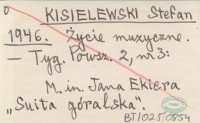 KISIELEWSKI Stefan
1946. Życie muzyczne.
— Tyg. Powsz. 2, nr 3:
M. in. Jana Ekiera
"Suita góralska".
BTI025/0554